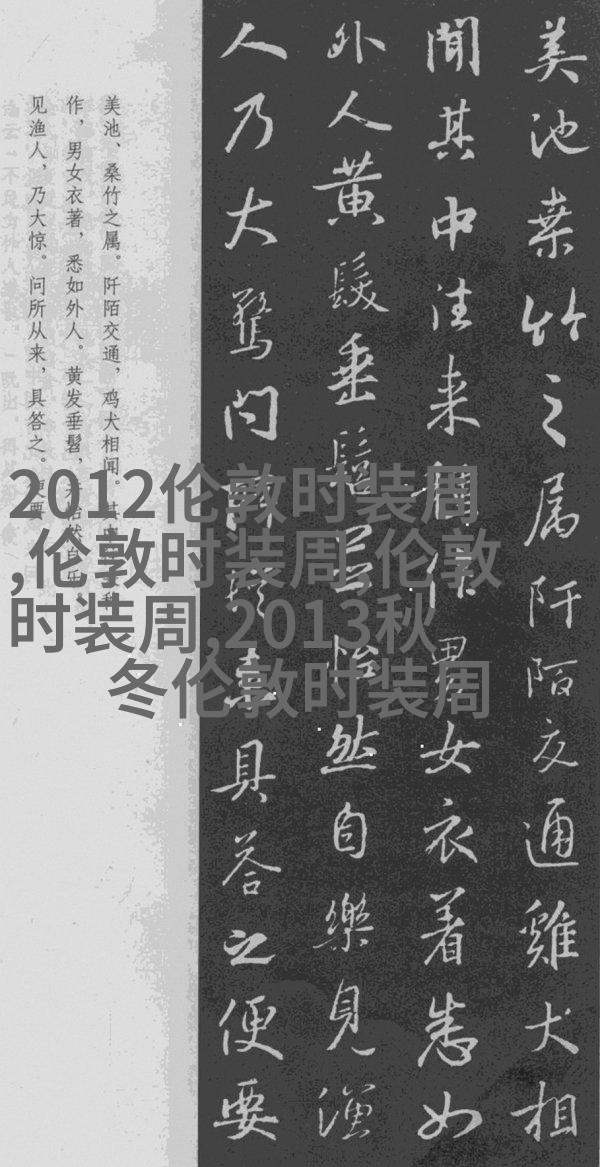 美池桑竹之属阡陌交通雞犬相
聞其中往来種作男女衣着悉如
外人黄髮垂髫並怡然自樂見漁
人乃大驚问所從来具答之便要
美池、桑竹之属。阡陌交通，鸡犬相闻。其中往来种
作，男女衣著，悉如外人。黄发垂髫，并怡然自乐。
见渔人，乃大惊。问所从来，具答之。便要
2012伦敦时装周
,伦敦时装周,伦敦
时装周,2013秋
冬伦敦时装周